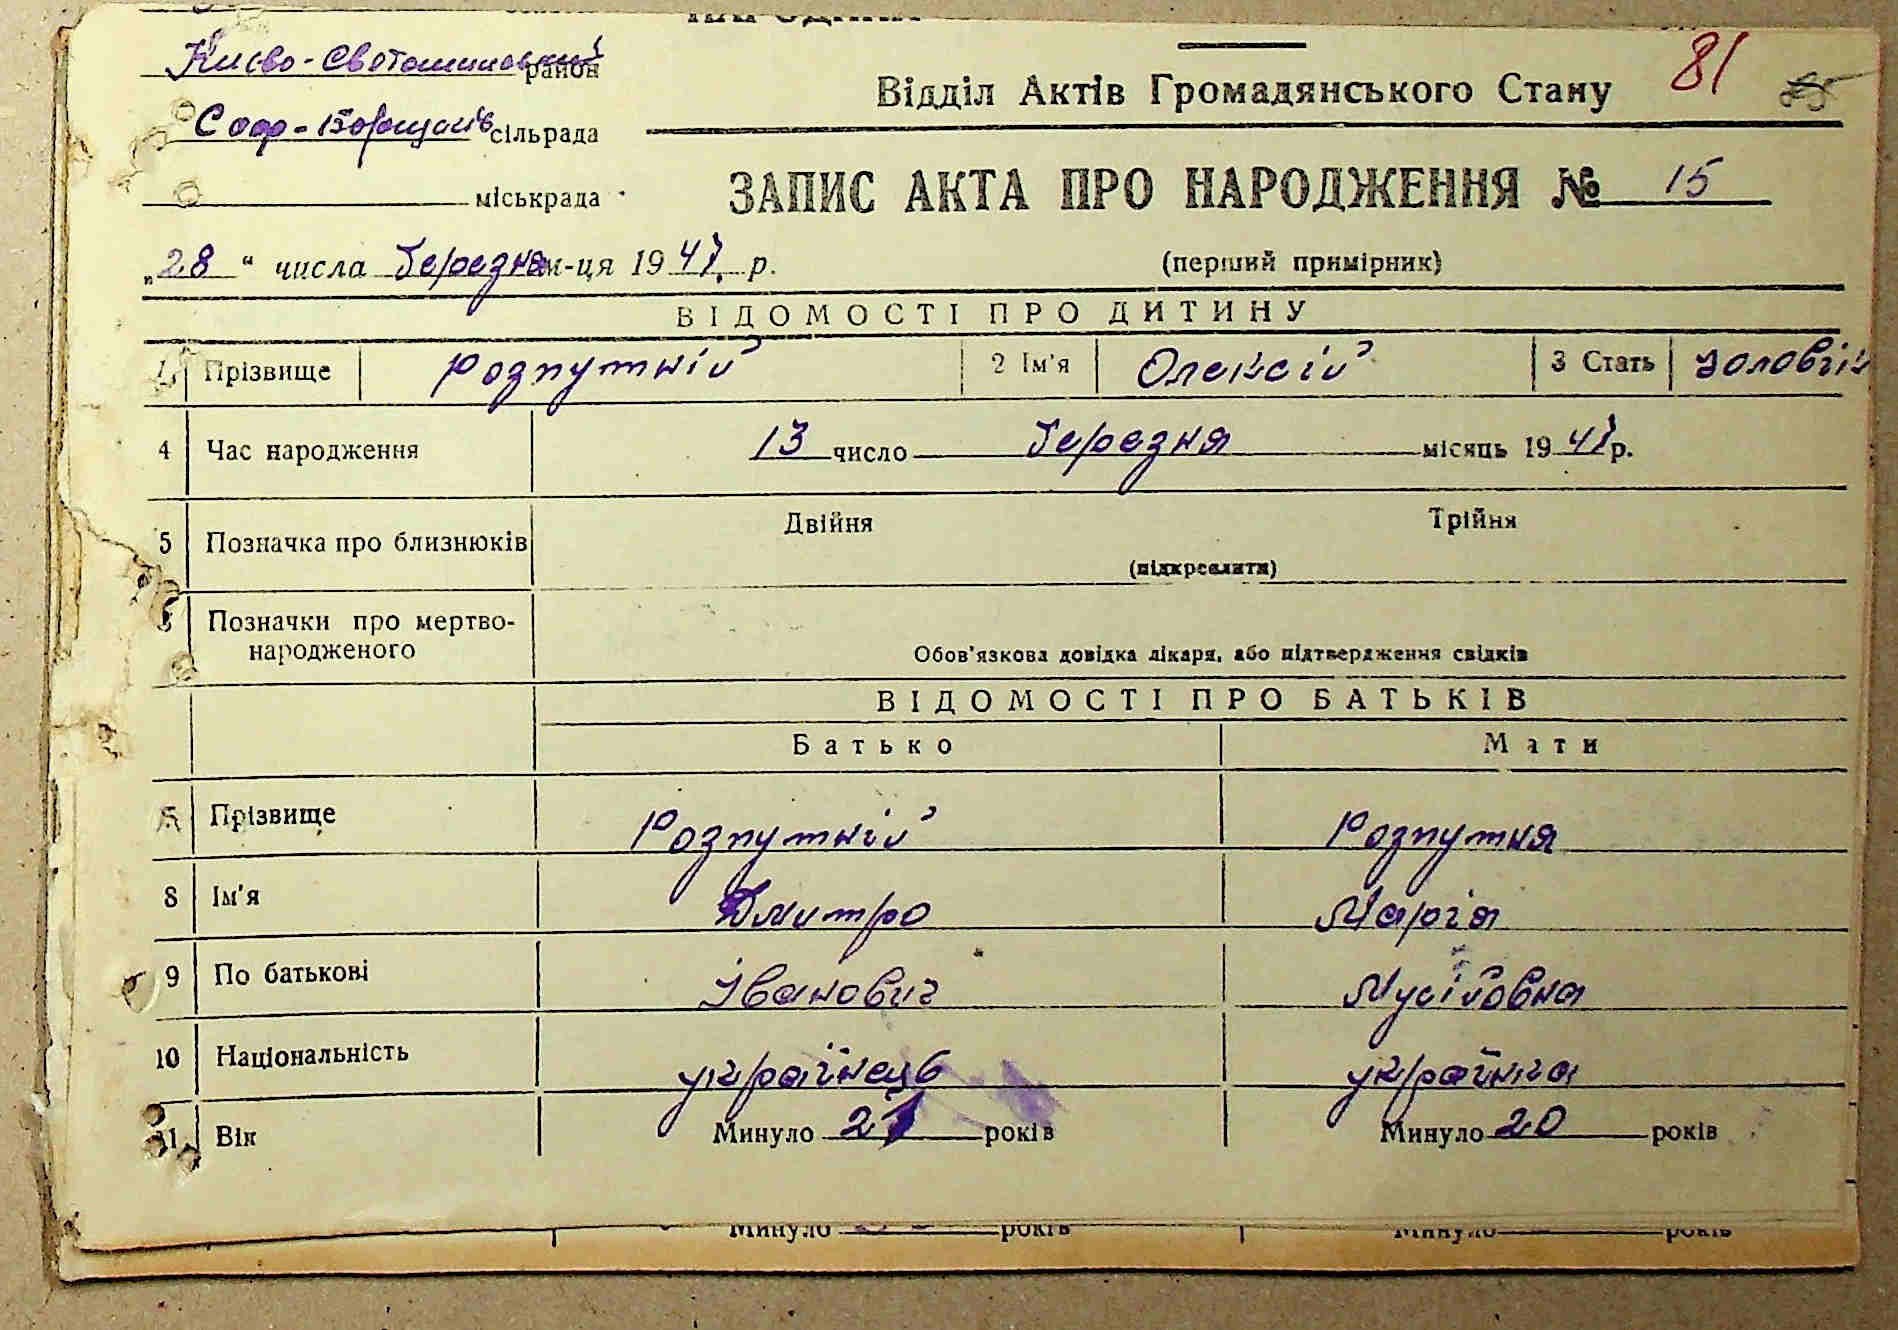 Києво-Святошинський район
Відділ Актів Громадянського Стану
81
Соф-Борщагів сільрада
ЗАПИС АКТА ПРО НАРОДЖЕННЯ № 15
міськрада
„28“ числа березня м-ця 1947 р.
(перший примірник)
ВІДОМОСТІ ПРО ДИТИНУ
1 Прізвище Розпутній 2 Ім'я Олексій 3 Стать чоловік
4 Час народження 13 число березня місяць 1947 р.
5 Позначка про близнюків Двійня Трійня
(підкреслити)
Позначки про мертво-
народженого
Обов'язкова довідка лікаря, або підтвердження свідків
ВІДОМОСТІ ПРО БАТЬКІВ
Батько Мати
Прізвище Розпутній Розпутня
8 Ім'я Дмитро Марія
9 По батькові Іванович Мусіївна
10 Національність українець українка
11 Вік Минуло 21 років Минуло 20 років
Минуло років Минуло років